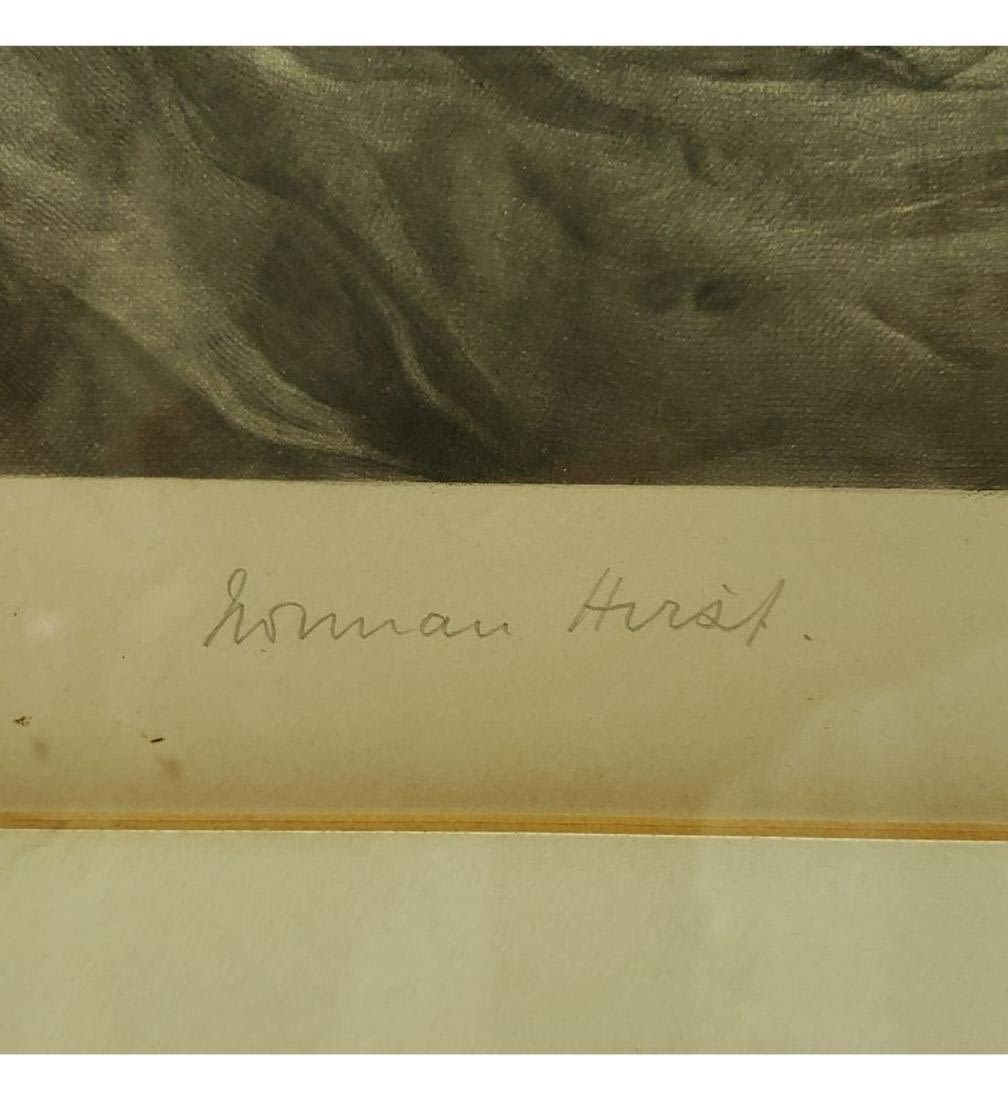 Norman Hirst.